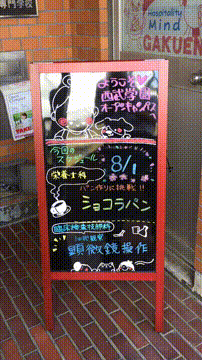 専門学校
Hospitality
Mind
GAKUEN
TAKE
ようこそ
西武学園
オープンキャンパス
今日の
スケジュール
8/1
栄養士科
パン作りに挑戦!!
ショコラパン
臨床検査技師科
顕微鏡操作